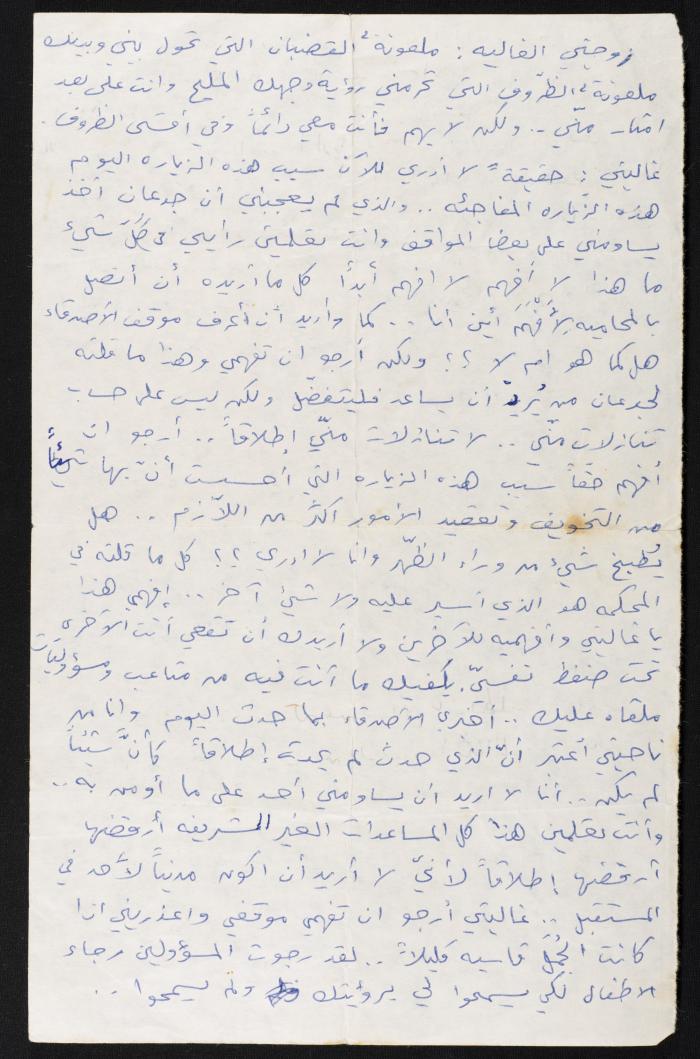 زوجتي الغاليه : ملعونةٌ القضبان التي تحول بيني وبينك
ملعونةٌ الظّروف التي تحرمني رؤية وجهك المليح وانت على بعد
امتار منّي .. ولكن لا يهم فأنت معي دائماً وفي أقسى الظروف .
غاليتي : حقيقةً لا أدري للآن سبب هذه الزياره اليوم
هذه الزّياره المفاجئه .. والذي لم يعجبني أن جدعان أخذ
يساومني على بعض المواقف وانت تعلمين رأيي في كلّ شيء
ما هذا لا أفهم لا افهم أبداً كل ما أريده أن أتصل
بالمحاميه لِأَفْهَمَ أين أنا .. كما وأريد أن أعرف موقف الأصدقاء
هل كما هو ام لا ؟؟ ولكن أرجو ان تفهمي وهذا ما قلته
لجدعان من يُريدُ أن يساعد فليتفضّل ولكن ليس على حساب
تنازلات منّي .. لا تنازلات منّي إطلاقاً .. أرجو ان
أفهم حقاً سبب هذه الزياره التي أحسست أنّ بها شيئاً
من التخويف وتعقيد الأمور اكثر من اللاّزم .. هل
يُطبخ شيء من وراء الظّهر وانا لا ادري ؟؟ كل ما قلته في
المحكمه هو الذي أسير عليه ولا شيء آخر .. إفهمي هذا
يا غاليتي وأفهميه للآخرين ولا أريدك أن تقعي أنت الأخرى
تحت ضغط نفسيّ . يكفيك ما أنت فيه من متاعب ومسؤوليّات
ملقاه عليك .. أخبري الأصدقاء بما حدث اليوم وانا من
ناحيتي أعتبر أنّ الذي حدث لم يحدث إطلاقاً كأنّ شيئاً
لم يكن .. أنا لا اريد أن يساومني أحد على ما أومن به ..
وأنت تعلمين هذا كل المساعدات الغير الشريفه أرفضها
أرفضها إطلاقاً لأنيّ لا أريد أن اكون مديناً لأحد في
المستقبل .. غاليتي أرجو ان تفهمي موقفي واعذريني اذا
كانت الجُمَل قاسيه قليلاً .. لقد رجوت المسؤولين رجاء
الاطفال لكي يسمحوا لي برؤيتك ولم يسمحوا ..